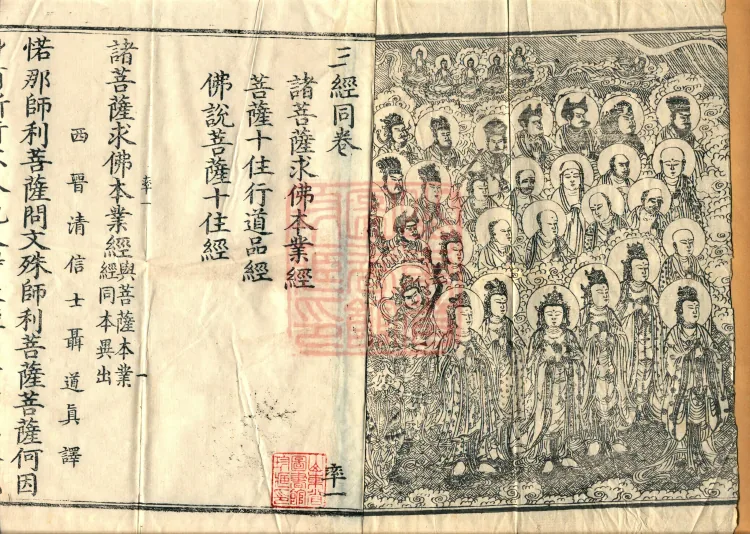 三經同卷
諸菩薩求佛本業經
菩薩十住行道品經
佛說菩薩十住經
率一
率一
一
諸菩薩求佛本業經與菩薩本業經同本異出
西晉清信士聶道眞譯
惒那師利菩薩問文殊師利菩薩菩薩何因